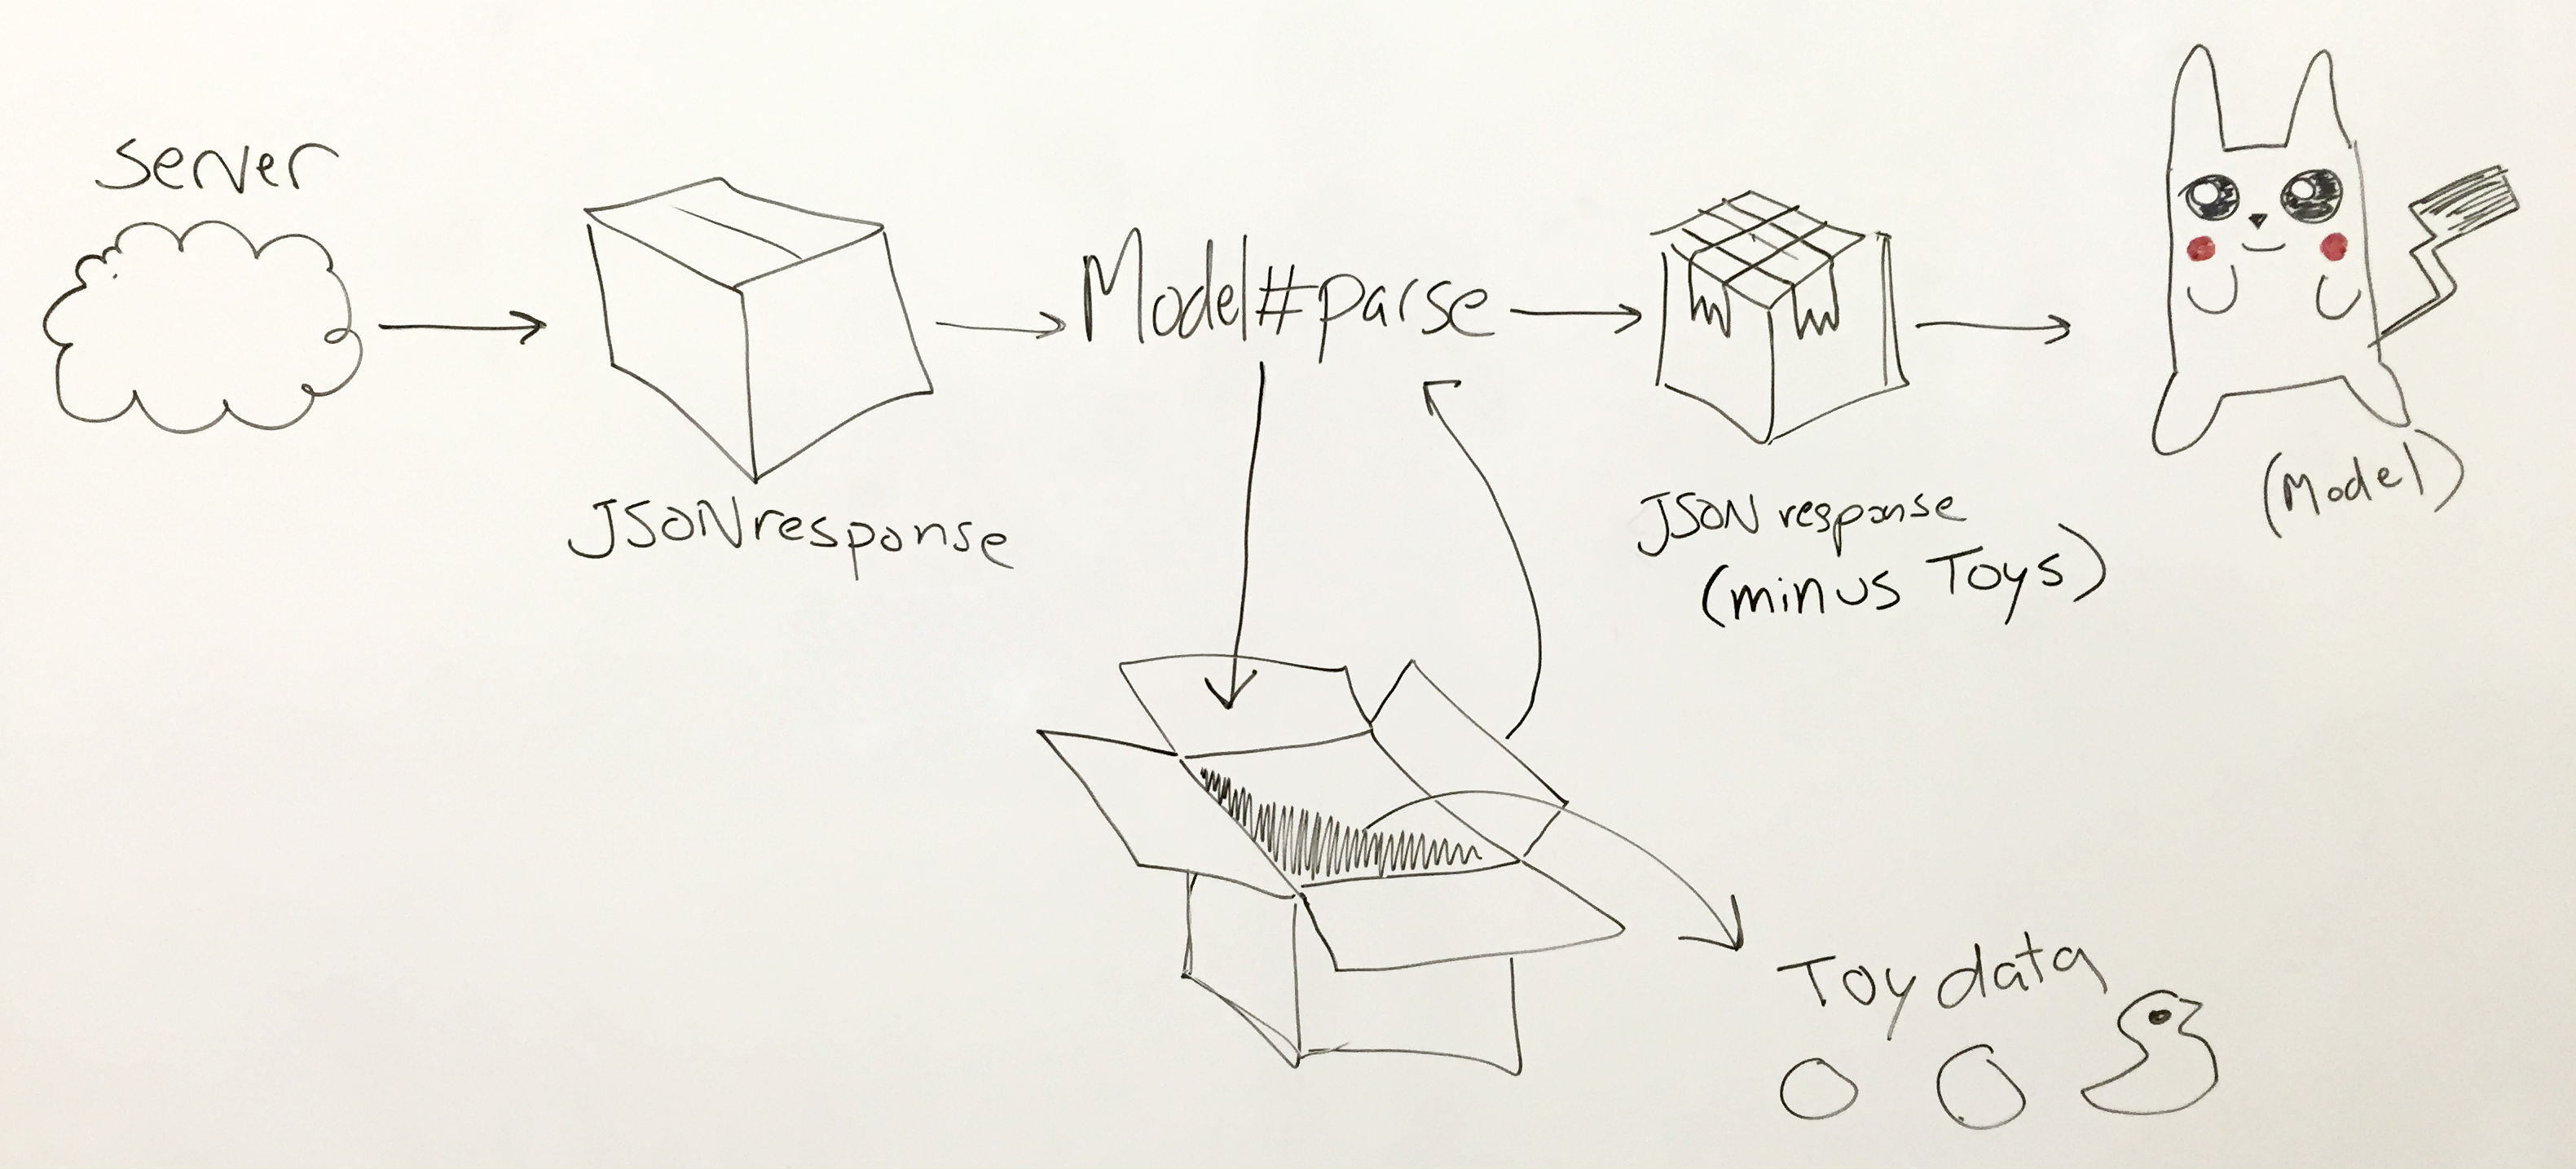 server
JSON response
Model#parse
JSON response
(minus Toys)
(Model)
Toy data